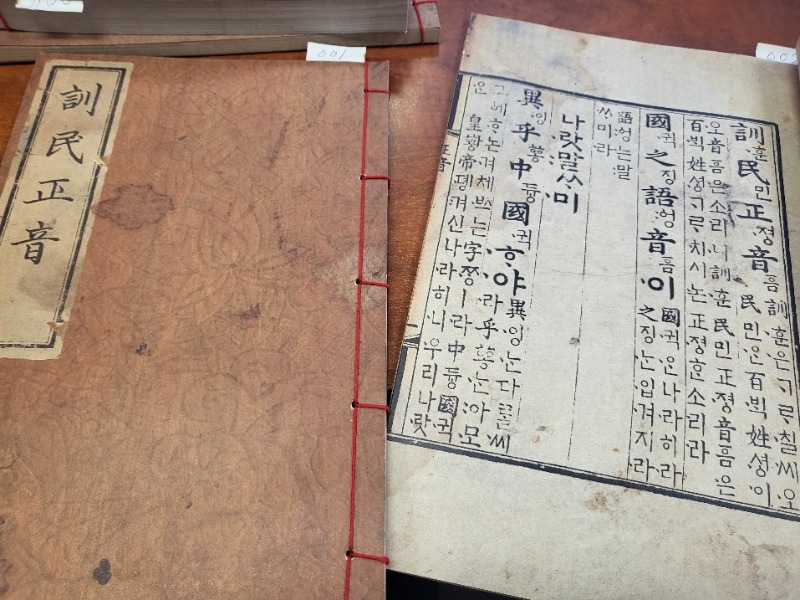 001
訓民正音
訓훈民민正졍音흠
訓훈은ᄀᆞᄅᆞ칠씨오
民민ᄋᆞᆫ百ᄇᆡᆨ姓셩이
오音흠은소리니訓훈民민正졍音흠은
百ᄇᆡᆨ姓셩ᄀᆞᄅᆞ치시논正졍ᄒᆞᆫ소리라
國귁之징語ᅌᅥᆼ音흠이
國귁ᄋᆞᆫ나라히라
之징ᄂᆞᆫ입겨지라
語ᅌᅥᆼ는말
ᄊᆞ미라
나랏말ᄊᆞ미
異잉乎ᅘᅩᆼ中듕國귁ᄒᆞ야
異잉ᄂᆞᆫ다ᄅᆞᆯ씨
라乎ᅘᅩᆼᄂᆞᆫ아모
그ᅌᅦᄒᆞ논겨체ᄡᅳ는字ᄍᆞᆼㅣ라中듕國귁
은皇황帝뎽겨신나라히니우리나랏